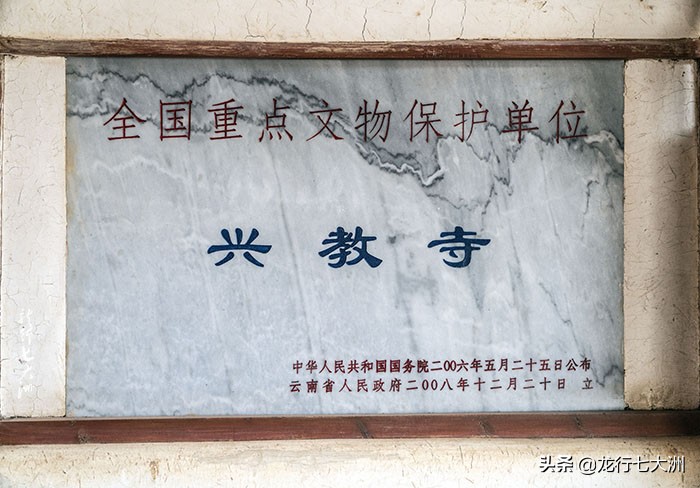 全国重点文物保护单位
兴教寺
中华人民共和国国务院二00六年五月二十五日公布
云南省人民政府二00八年十二月二十日 立
头条@龙行七大洲